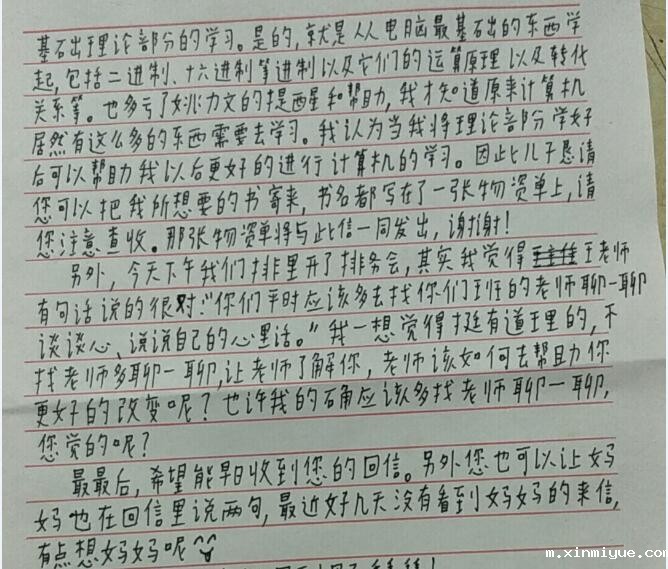 基础理论部分的学习。是的，就是从电脑最基础的东西学
起，包括二进制、十六进制等进制以及它们的运算原理以及转化
关系等。也多亏了姚力文的提醒和帮助，我才知道原来计算机
居然有这么多的东西需要去学习。我认为当我将理论部分学好
后可以帮助我以后更好的进行计算机的学习。因此儿子恳请
您可以把我所想要的书寄来，书名都写在了一张物资单上，请
您注意查收。那张物资单将与此信一同发出，谢谢！
另外，今天下午我们排里开了排务会，其实我觉得王老师
有句话说的很对：“你们平时应该多去找你们班的老师聊一聊
谈谈心、说说自己的心里话。”我一想觉得挺有道理的，不
找老师多聊一聊，让老师了解你，老师该如何去帮助你
更好的改变呢？也许我的确应该多找老师聊一聊，
您觉的呢？
最最后，希望能早日收到您的回信。另外您也可以让妈
妈也在回信里说两句，最近好几天没有看到妈妈的来信，
有点想妈妈呢
m.xinmiyue.com